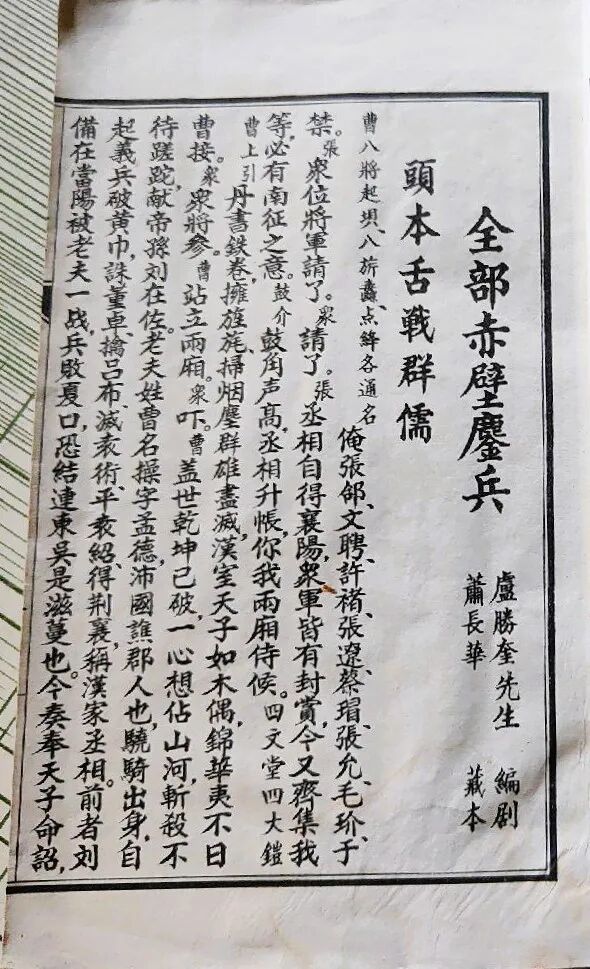 全部赤壁鏖兵
盧勝奎先生 編剧
蕭長華 藏本
頭本舌戰群儒
曹八將起垻、八旂纛、点絳各通名
俺張郃、文聘、許褚、張遼、蔡瑁、張允、毛玠、于
禁。張衆位將軍請了。衆請了。張丞相自得襄陽,衆軍皆有封賞,今又齊集我
等,必有南征之意。鼓介鼓角声高,丞相升帳,你我兩廂侍候。四文堂四大鎧
曹上引丹書鉄卷,擁旌旄,掃烟塵,群雄盡滅,漢室天子如木偶,錦華夷不日
曹接。衆衆將參。曹站立兩廂。衆吓。曹盖世乾坤已破,一心想佔山河,斬殺不
待蹉跎,献帝孫刘在佐。老夫姓曹名操字孟德,沛國譙郡人也,驍騎出身,自
起義兵破黄巾,誅董卓、擒吕布、滅袁術、平袁紹、得荆襄,稱漢家丞相。前者刘
備在當陽被老夫一战,兵敗夏口,恐结連東吴,是滋蔓也。今奏奉天子命詔,